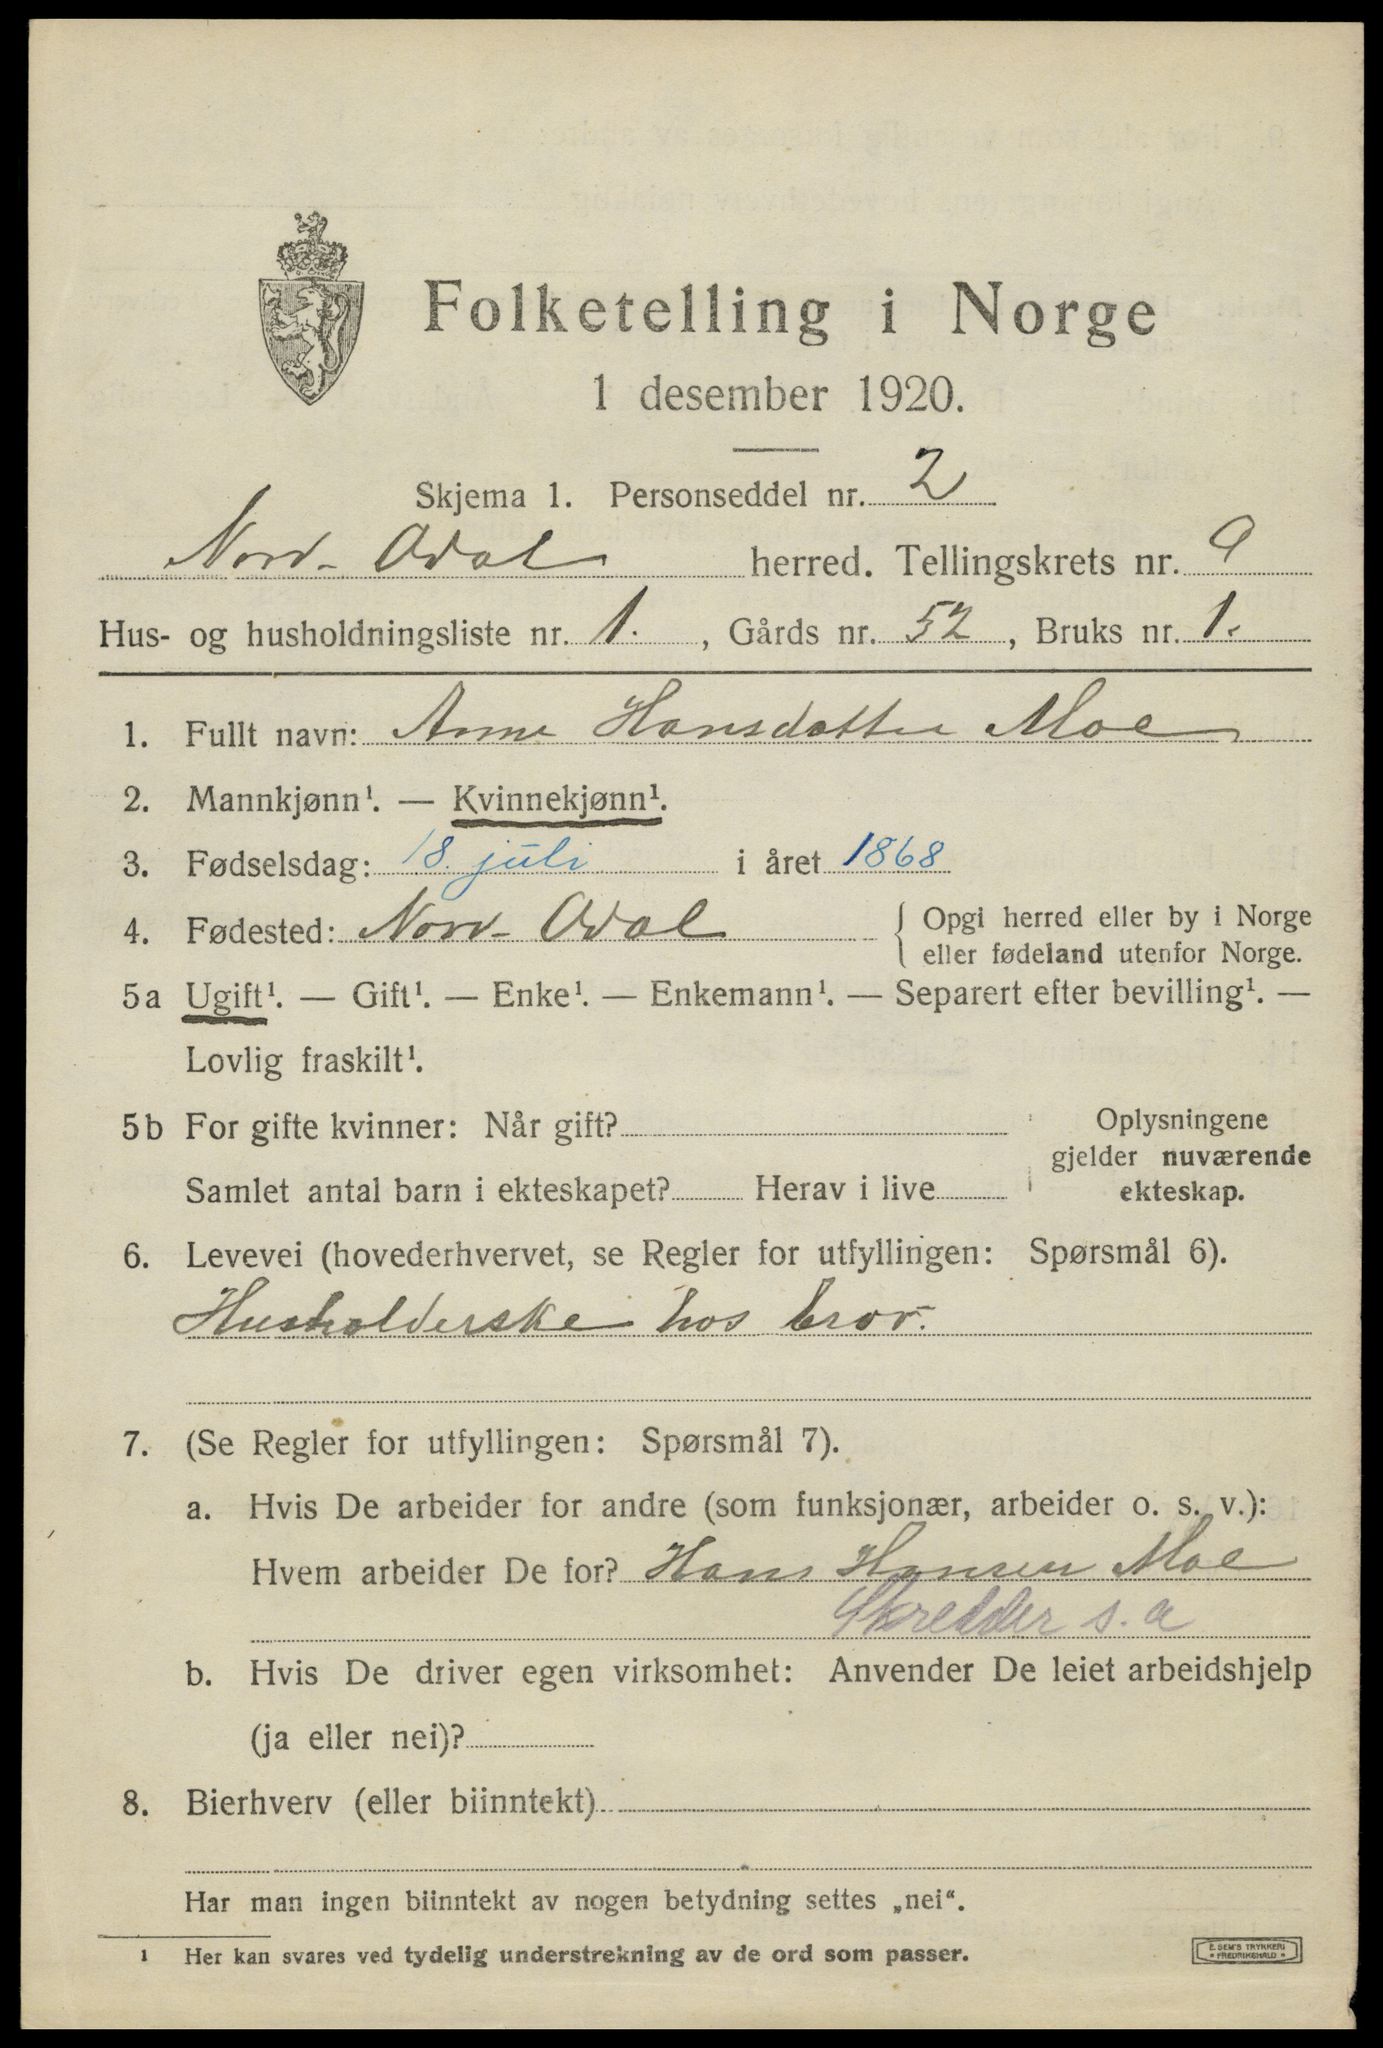 Folketelling i Norge
1 desember 1920.
Skjema 1. Personseddel nr. 2
Nord-Odal herred. Tellingskrets nr. 9
Hus- og husholdningsliste nr. 1. , Gårds nr. 52 , Bruks nr. 1.
1. Fullt navn: Anne Hansdatter Moe
2. Mannkjønn¹. — Kvinnekjønn¹.
3. Fødselsdag: 18. juli i året 1868
4. Fødested: Nord-Odal { Opgi herred eller by i Norge
eller fødeland utenfor Norge.
5a Ugift¹. — Gift¹. — Enke¹. — Enkemann¹. — Separert efter bevilling¹. —
Lovlig fraskilt¹.
5b For gifte kvinner: Når gift?
Samlet antal barn i ekteskapet? Herav i live
Oplysningene
gjelder nuværende
ekteskap.
6. Levevei (hovederhvervet, se Regler for utfyllingen: Spørsmål 6).
Husholderske hos bror.
7. (Se Regler for utfyllingen: Spørsmål 7).
a. Hvis De arbeider for andre (som funksjonær, arbeider o. s. v.):
Hvem arbeider De for? Hans Hansen Moe
Skredder s.a
b. Hvis De driver egen virksomhet: Anvender De leiet arbeidshjelp
(ja eller nei)?
8. Bierhverv (eller biinntekt)
Har man ingen biinntekt av nogen betydning settes „nei“.
¹ Her kan svares ved tydelig understrekning av de ord som passer.
E. SEM'S TRYKKERI
* FREDRIKSHALD *